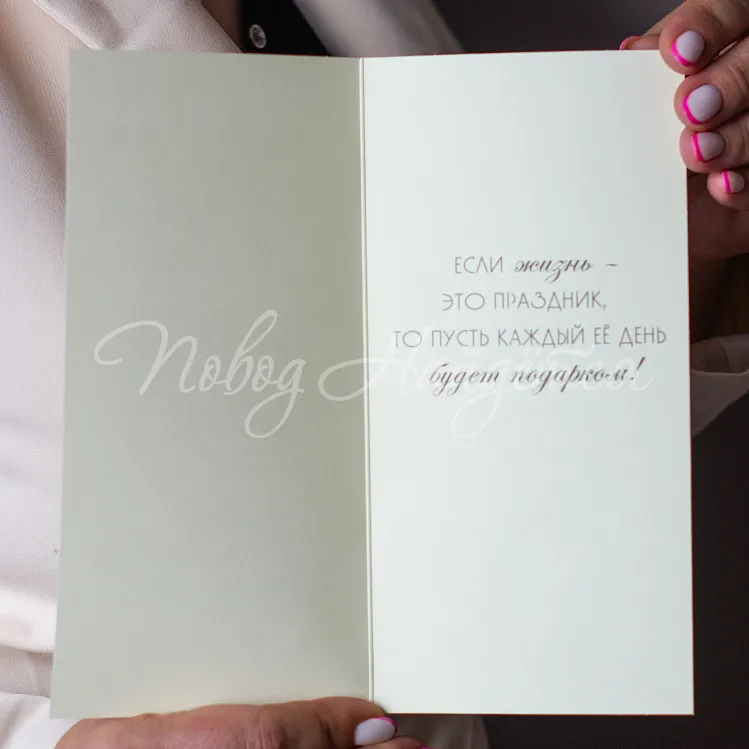 ЕСЛИ жизнь –
ЭТО ПРАЗДНИК,
ТО ПУСТЬ КАЖДЫЙ ЕЁ ДЕНЬ
будет подарком!
Повод Найдётся